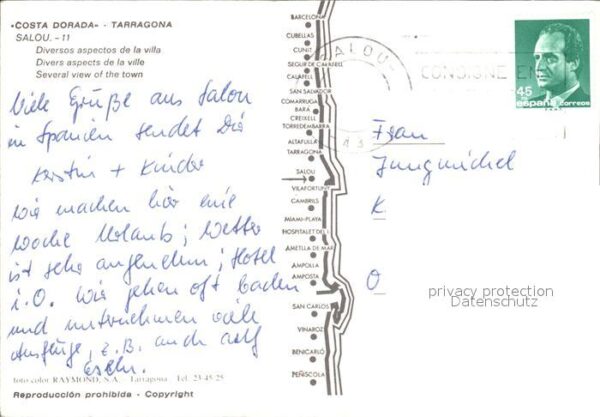 «COSTA DORADA» - TARRAGONA
SALOU. - 11
Diversos aspectos de la villa
Divers aspects de la ville
Several view of the town
Viele Grüße aus Salou
in Spanien sendet Dir
Kerstin + Kinder
Wir machen hier eine
Woche Urlaub; Wetter
ist sehr angenehm; Hotel
i.O. Wir gehen oft baden
und unternehmen viele
Ausflüge, z.B. auch auf
foto color RAYMOND, S.A. Tarragona, Tel. 23-45-25
Reproducción prohibida - Copyright
BARCELONA
CUBELLAS
CUNIT
SEGUR DE CARAFELL
CALAFELL
SAN SALVADOR
COMARRUGA
BARA
CREIXELL
TORREDEMBARRA
ALTAFULLA
TARRAGONA
SALOU
VILAFORTUNY
CAMBRILS
MIAMI-PLAYA
HOSPITALET DEL I.
AMETLLA DE MAR
AMPOLLA
AMPOSTA
SAN CARLOS
VINAROZ
BENICARLÓ
PEÑISCOLA
SALOU
CONSIGNE EN
45
españa correos
Frau
Jungnickel
K
O
privacy protection
Datenschutz